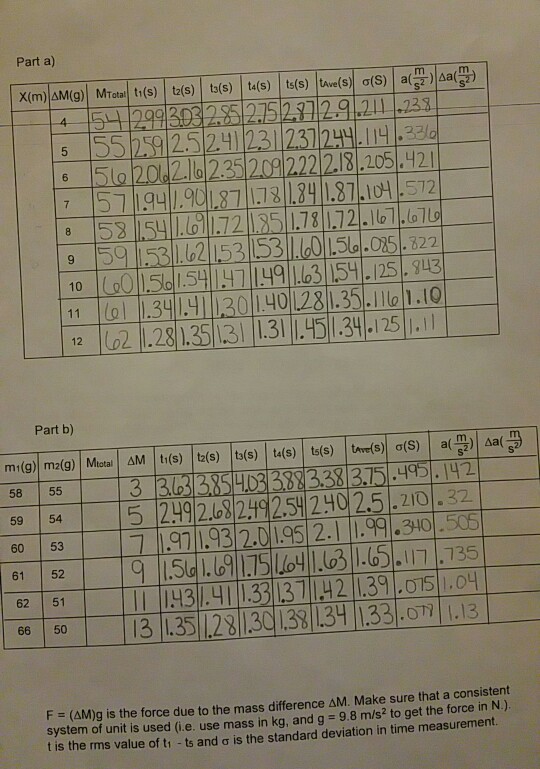 Part a)
X(m) ΔM(g) MTotal t1(s) t2(s) t3(s) t4(s) t5(s) tAve(s) σ(S) a(m/s²) Δa(m/s²)
4 54 2.99 3.03 2.85 2.75 2.87 2.9 .211 .238
5 55 2.59 2.5 2.41 2.31 2.37 2.44 .114 .336
6 56 2.06 2.16 2.35 2.09 2.22 2.18 .205 .421
7 57 1.94 1.90 1.87 1.78 1.84 1.87 .104 .572
8 58 1.54 1.69 1.72 1.85 1.78 1.72 .167 .676
9 59 1.53 1.62 1.53 1.53 1.60 1.56 .085 .822
10 60 1.56 1.54 1.47 1.49 1.63 1.54 .125 .843
11 61 1.34 1.41 1.30 1.40 1.28 1.35 .116 1.10
12 62 1.28 1.35 1.31 1.31 1.45 1.34 .125 1.11
Part b)
m1(g) m2(g) Mtotal ΔM t1(s) t2(s) t3(s) t4(s) t5(s) tAve(s) σ(S) a(m/s²) Δa(m/s²)
58 55 3 3.63 3.85 4.03 3.88 3.38 3.75 .495 .142
59 54 5 2.49 2.68 2.49 2.54 2.40 2.5 .210 .32
60 53 7 1.97 1.93 2.0 1.95 2.1 1.99 .340 .505
61 52 9 1.56 1.69 1.75 1.64 1.63 1.65 .117 .735
62 51 11 1.43 1.41 1.33 1.37 1.42 1.39 .075 1.04
66 50 13 1.35 1.28 1.30 1.38 1.34 1.33 .079 1.13
F = (ΔM)g is the force due to the mass difference ΔM. Make sure that a consistent
system of unit is used (i.e. use mass in kg, and g = 9.8 m/s² to get the force in N.).
t is the rms value of t1 - t5 and σ is the standard deviation in time measurement.